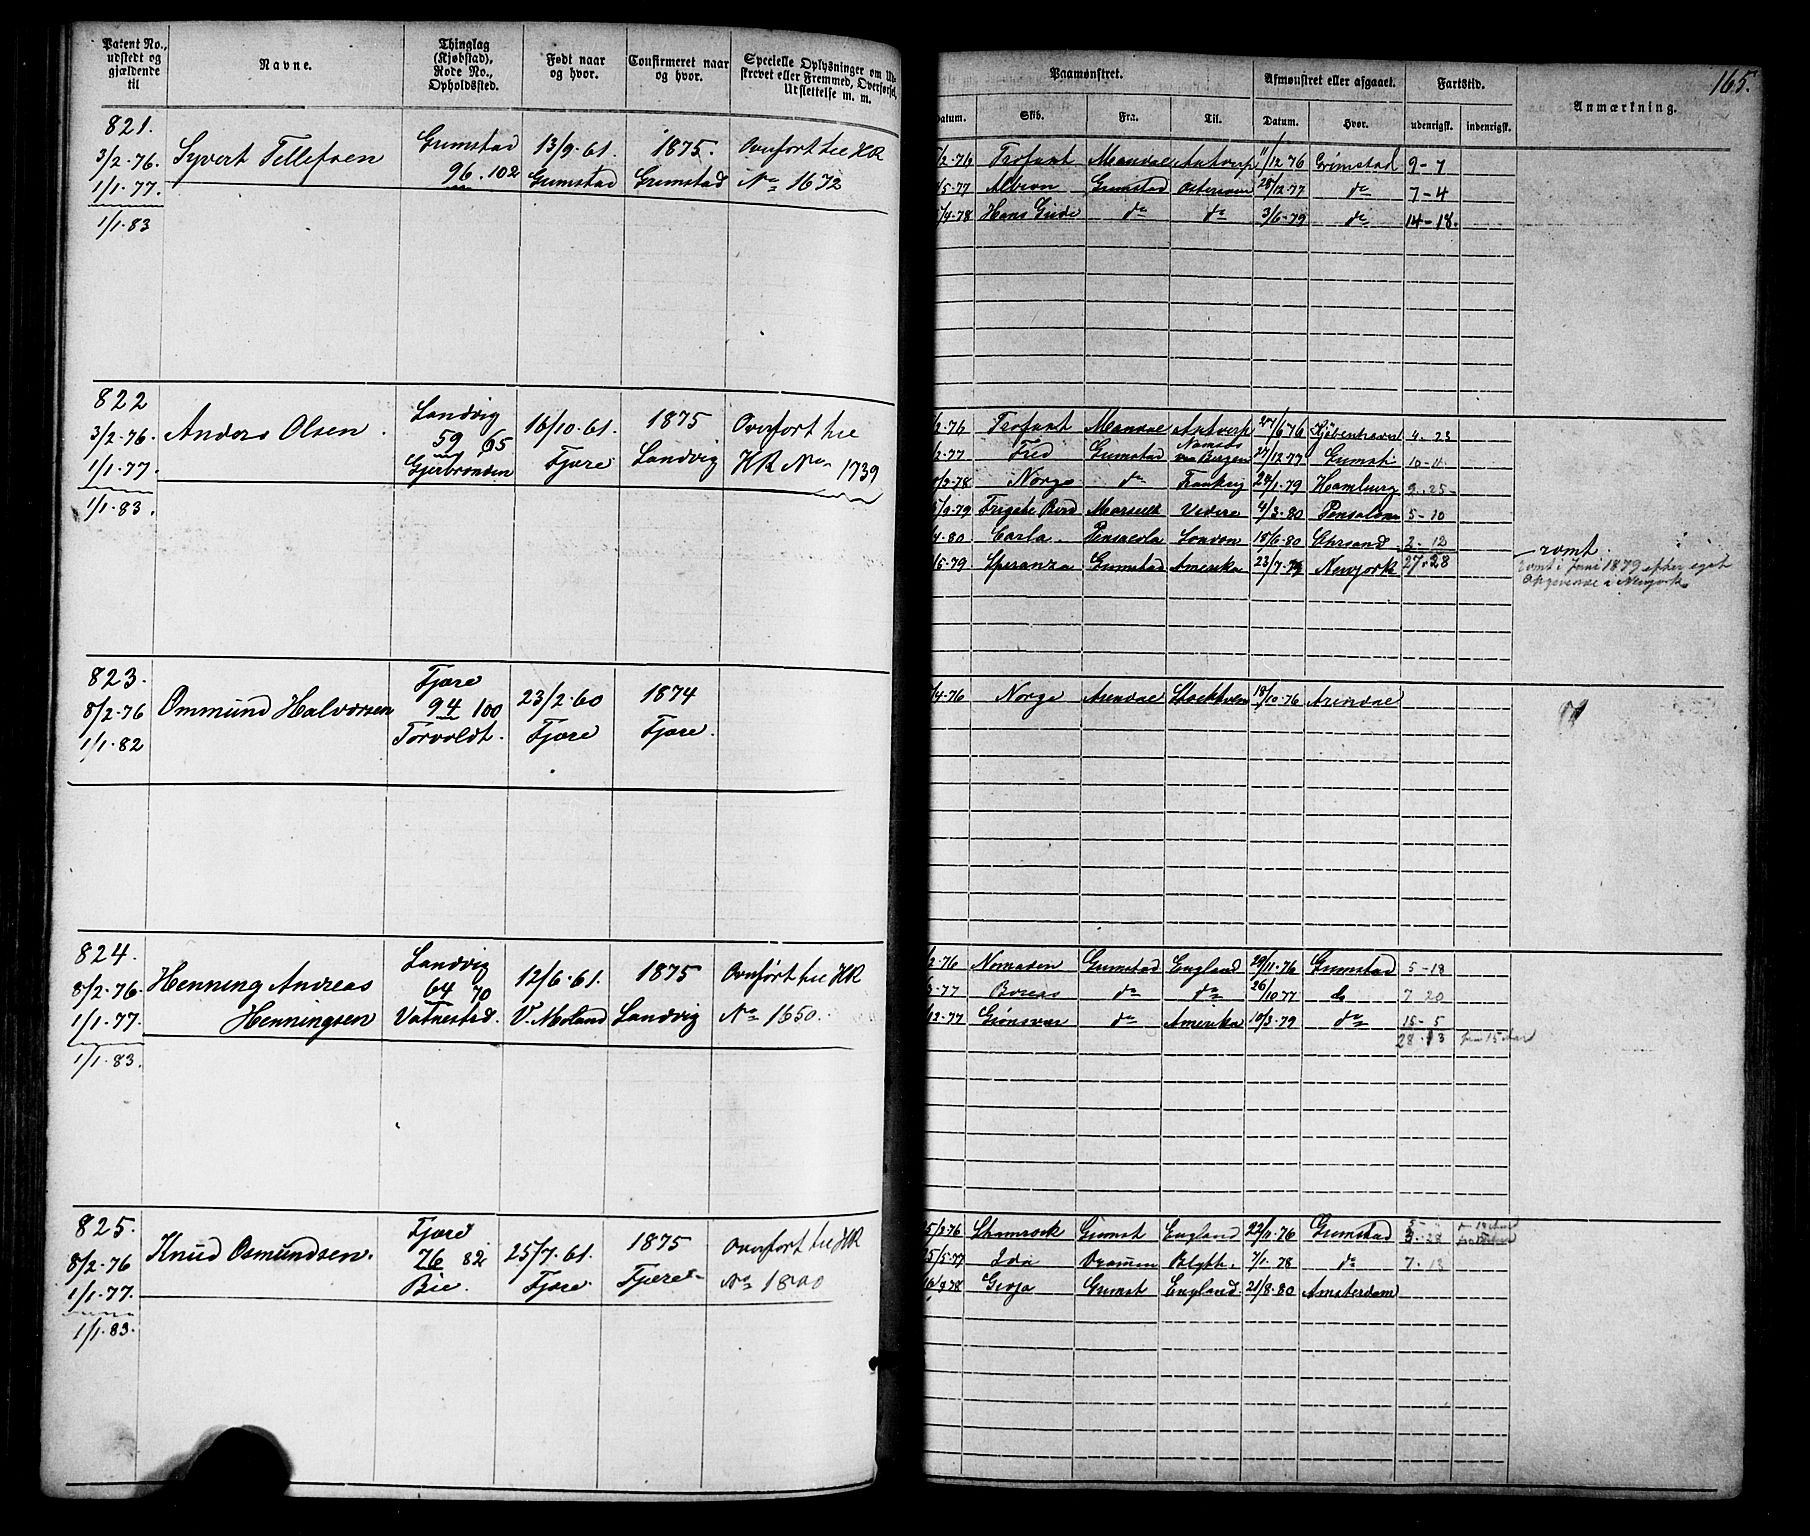 Patent No., udstedt og gjældende til | Navne. | Thinglag (Kjøbstad), Rode No., Opholdssted. | Født naar og hvor. | Confirmeret naar og hvor. | Specielle Oplysninger om Udskrevet eller Fremmed, Overførsel, Udslettelse m. m.
821.
3/2-76.
1/1-77.
1/1.83
Syvert Tellefsen
Grimstad
96. 102
13/9-61.
Grimstad
1875.
Grimstad
Overført til HR
No 1672
822
3/2-76.
1/1-77.
1/1-83.
Anders Olsen.
Landvig
59 65
16/10-61.
Fjære
1875
Landvig
Overført til
HR No 1739
823.
8/2-76
1/1-82
Ommund Halvorsen
Fjære
94 100
Torvoldt.
23/2-60
Fjære
1874
Fjære.
824.
8/2-76.
1/1-77.
1/1-83.
Henning Andreas
Henningsen
Landvig
64 70
Vatnestad.
12/6-61.
V. Moland
1875
Landvig
Overført til HR
No 1650.
825.
8/2-76
1/1-77.
1/1-83.
Knud Osmundsen.
Fjære
76 82
Bie.
25/7-61.
Fjære
1875
Fjære
Overført til HR
No 1800
165.
Paamønstret. | Afmønstret eller afgaaet. | Fartstid. | Anmærkning.
Datum. | Skib. | Fra. | Til. | Datum. | Hvor. | udenrigsk. | indenrigsk.
/2-76 Trofast Mandal Antverp 11/12 76 Grimstad 9-7
/5-77 Albion Grimstad Østersøen 28/12-77 do 7-4
/4-78 Hans Gude do do 3/6-79 do 14-18.
/2-76 Trofast Mandal Antverp 27/6 76 Kjøbenhavn 4. 23
/2-77 Fred Grimstad Bergen 27/12-77 Grimst 10-11
/2-78 Norge do Frankrig 24/1-79 Hamburg 9.25-
/9-79 Marseill 4/3-80 5-10
/4-80 Carla. Pensacola London 18/6-80 Chrsand 2-12
/5-79 Speranza Grimstad Amerika 23/7-79 Newjork 27.28
römt.
römt i Juni 1879 efter eget
Opgivende i Newjork
/4-76 Norge Arendal Stockholm 18/10-76 Arendal
/2-76 Nomaden Grimstad England 29/11-76 Grimstad 5-18
-77 Boreas do do 26/10-77 do 7-20
/12-77 Grønsvær do Amerika 10/3-79 do 15-5
28.13
15/2-76 Shamrock Grimst England 22/11-76 Grimstad
5/5-77 Ida Drammen Blyth. 7/1-78 do 7-13
Geoja Grimst England. 21/8-80 Amsterdam